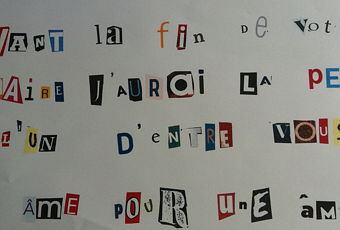 VANT la fin De Vot
AIRE J'AURAI LA PE
L'UN D'eNTRE VOUS
ÂME POUR UnE âM